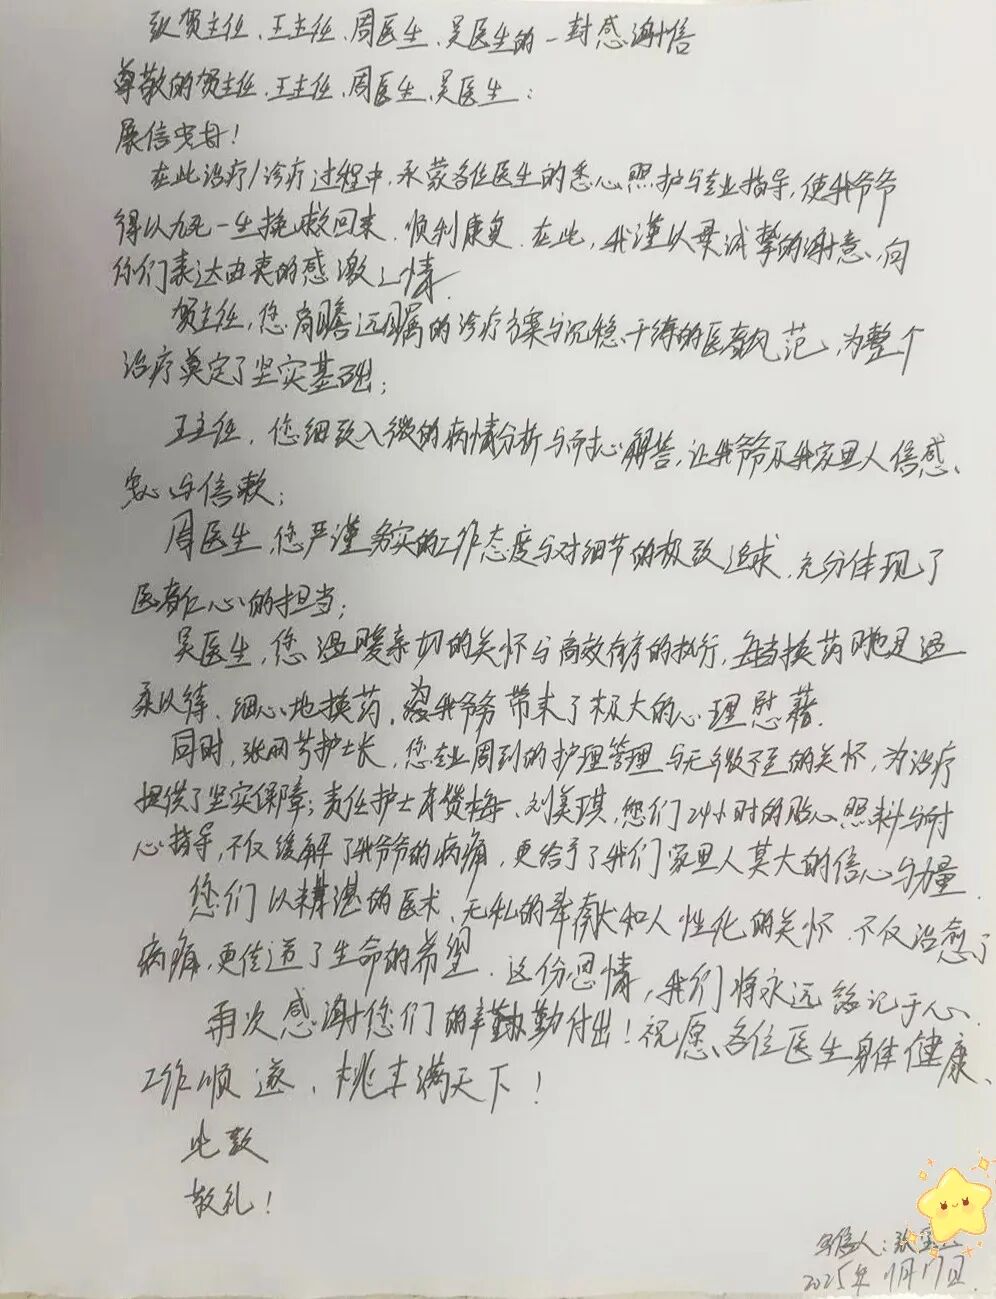 致贺主任、王主任、周医生、吴医生的一封感谢信
尊敬的贺主任、王主任、周医生、吴医生：
展信安好！
在此治疗/诊疗过程中,承蒙各位医生的悉心照护与专业指导,使我爷爷
得以九死一生挽救回来,顺利康复.在此,我谨以最诚挚的谢意,向
你们表达由衷的感激之情.
贺主任,您高瞻远瞩的诊疗方案与沉稳干练的医者风范,为整个
治疗奠定了坚实基础;
王主任,您细致入微的病情分析与耐心解答,让我爷爷及我家里人倍感
安心与信赖;
周医生,您严谨务实的工作态度与对细节的极致追求,充分体现了
医者仁心的担当;
吴医生,您温暖亲切的关怀与高效有序的执行,每当换药时她总是温
柔以待,细心地换药,为我爷爷带来了极大的心理慰藉.
同时,张丽芳护士长,您专业周到的护理管理与无微不至的关怀,为治疗
提供了坚实保障;责任护士 梅、刘美琪,您们24小时的贴心照料与耐
心指导,不仅缓解了我爷爷的病痛,更给予了我们家里人莫大的信心与力量.
您们以精湛的医术、无私的奉献和人性化的关怀,不仅治愈了
病痛,更传递了生命的希望.这份恩情,我们将永远铭记于心.
再次感谢您们的辛勤付出!祝愿各位医生身体健康、
工作顺遂,桃李满天下!
此致
敬礼!
写信人:张
2025年 月17日